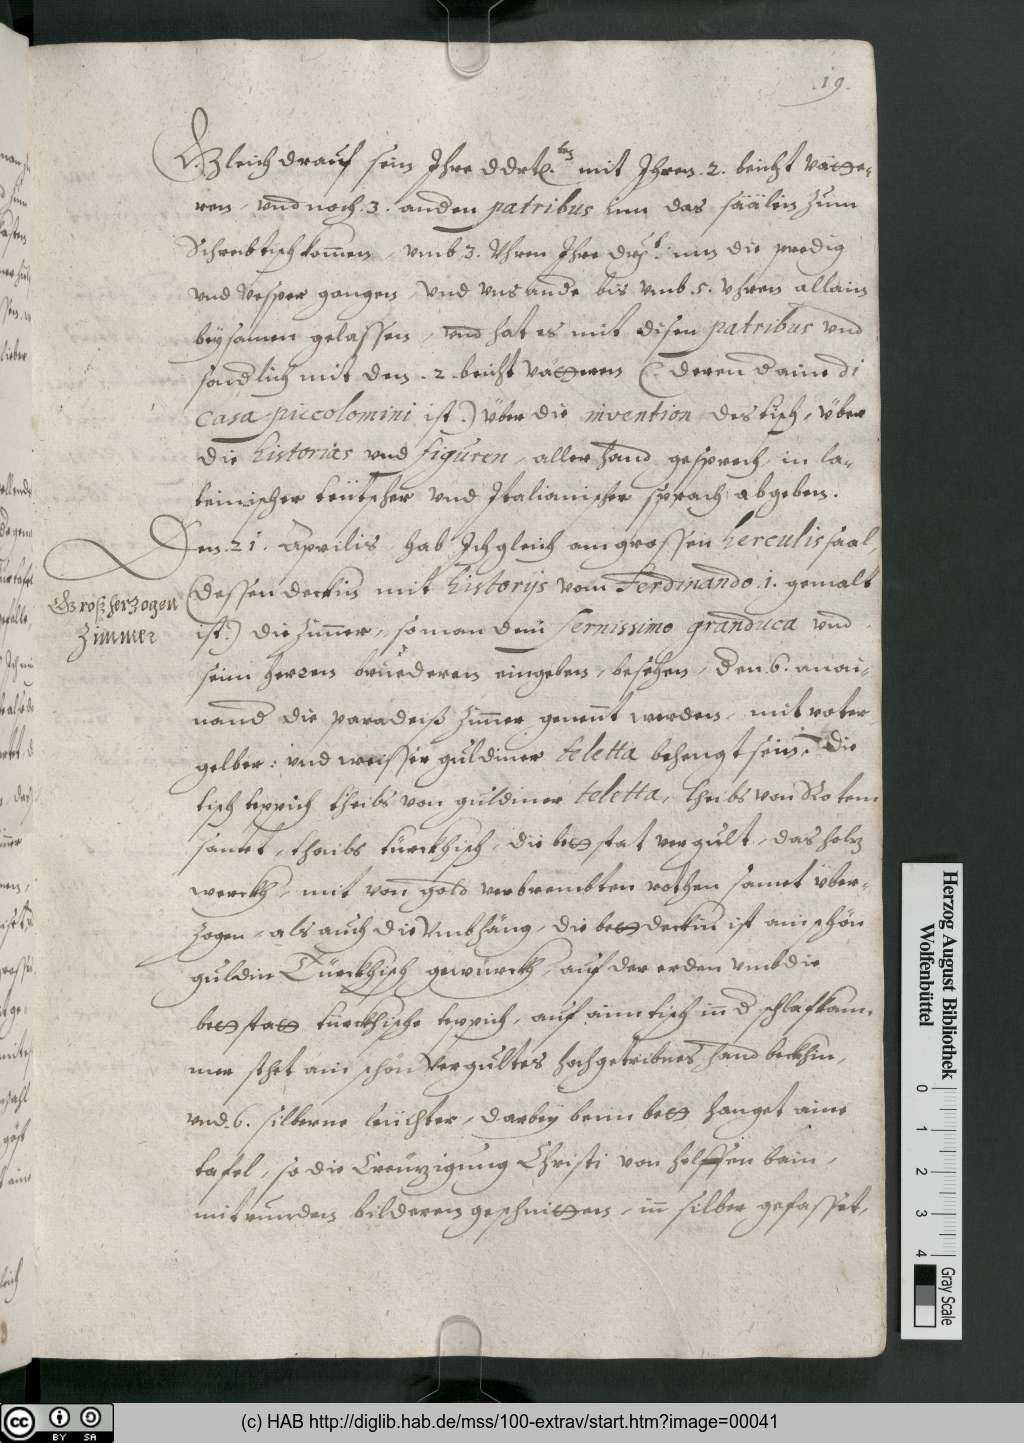 .19.
Gleich drauf sein Ihre ddrtl.ten mit Ihren .2. beicht vätte-
ren, vnd noch .3. anden patribus inn das säälin zum
Schreibtisch komen, vmb 3. Vhren Ihre drl. inn die predig
vnd Vesper gangen, vnd vns ande bis vmb .5. vhren allain
beysamen gelassen, vnd hat es mit disen patribus vnd
sondlich mit den .2. beicht vätteren (: deren d aine di
casa piccolomini ist :) über die invention des tisch, über
die historias vnd figuren, aller hand gesprech in la-
teinischer teütscher vnd Italianischer sprach abgeben.
Den .21. Aprilis hab Ich gleich am grossen herculis saal,
(dessen deckin mit historijs vom Ferdinando .1. gemalt
ist :) die Zimer, so man dem Sernissimo granduca vnd
Großherzogen
Zimmer
seim herren bruederen eingeben, besehen, den .6. anai-
nand die paradeiß zimer genent werden, mit roter
gelber: vnd weisser guldiner teletta behengt sein, die
tisch teppich theils von guldiner teletta, theils von Rotem
samet, thails türckhisch, die bettstat vergult, das holz
werckh, mit von gold verbrembten rothen samet über-
zogen, als auch die Vmbhäng, die bettdeckin ist ain schön
guldin Türckhisch gewürckh, auf der erden vmb die
bettstatt türckhische teppich, auf aim tisch in d schlafkam-
mer sthet ain schön Vergultes hochgetribnes handbeckhin,
vnd .6. silberne leüchter, darbey beim bett hanget aine
tafel, so die Creützigung Christi von helffen bain,
mit runden bilderen geschnitten, in silber gefasset,
Herzog August Bibliothek
Wolfenbüttel
0 1 2 3 4
Gray Scale
(c) HAB http://diglib.hab.de/mss/100-extrav/start.htm?image=00041
cc BY SA